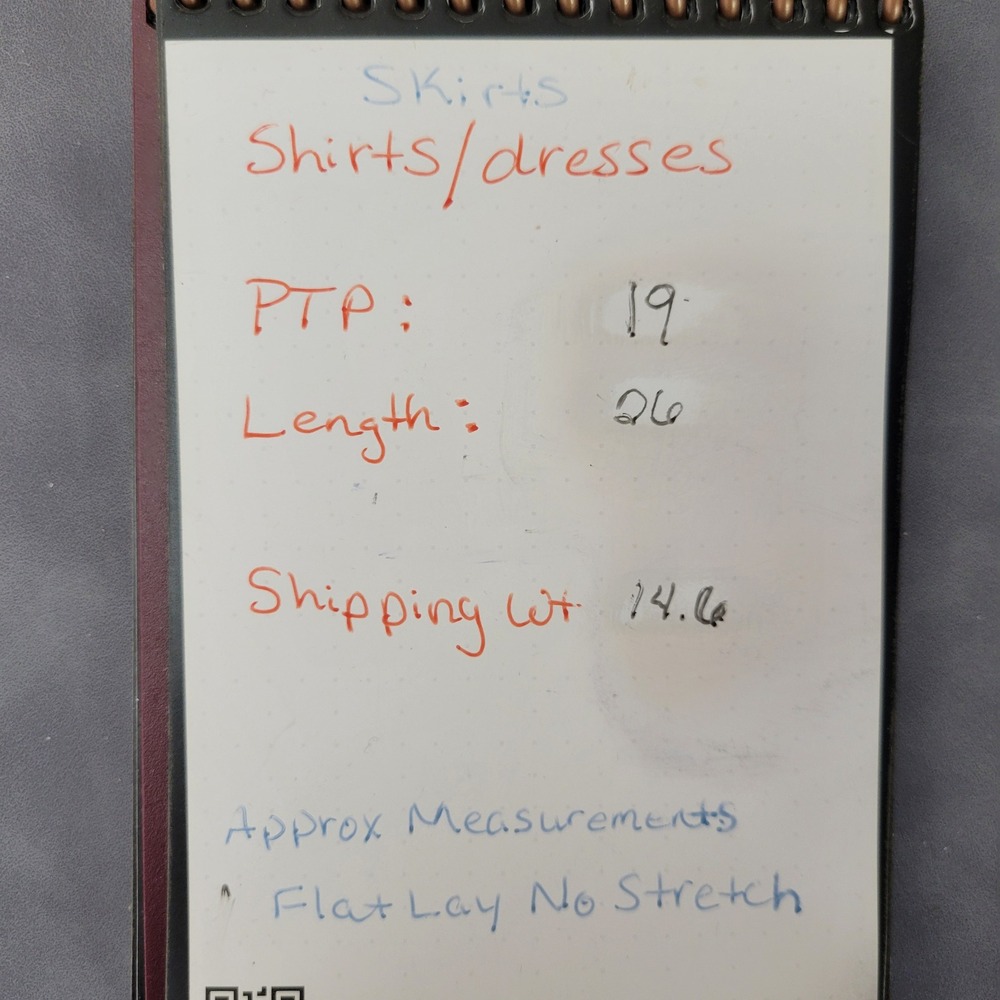 Skirts
Shirts/dresses
PTP: 19
Length: 26
Shipping Wt 14.6
Approx Measurements
Flat Lay No Stretch